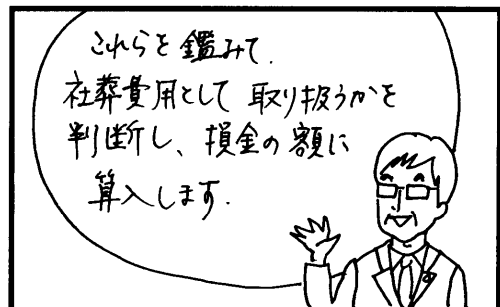 これらを鑑みて.
社葬費用として 取り扱うかを
判断し、損金の額に
算入します.